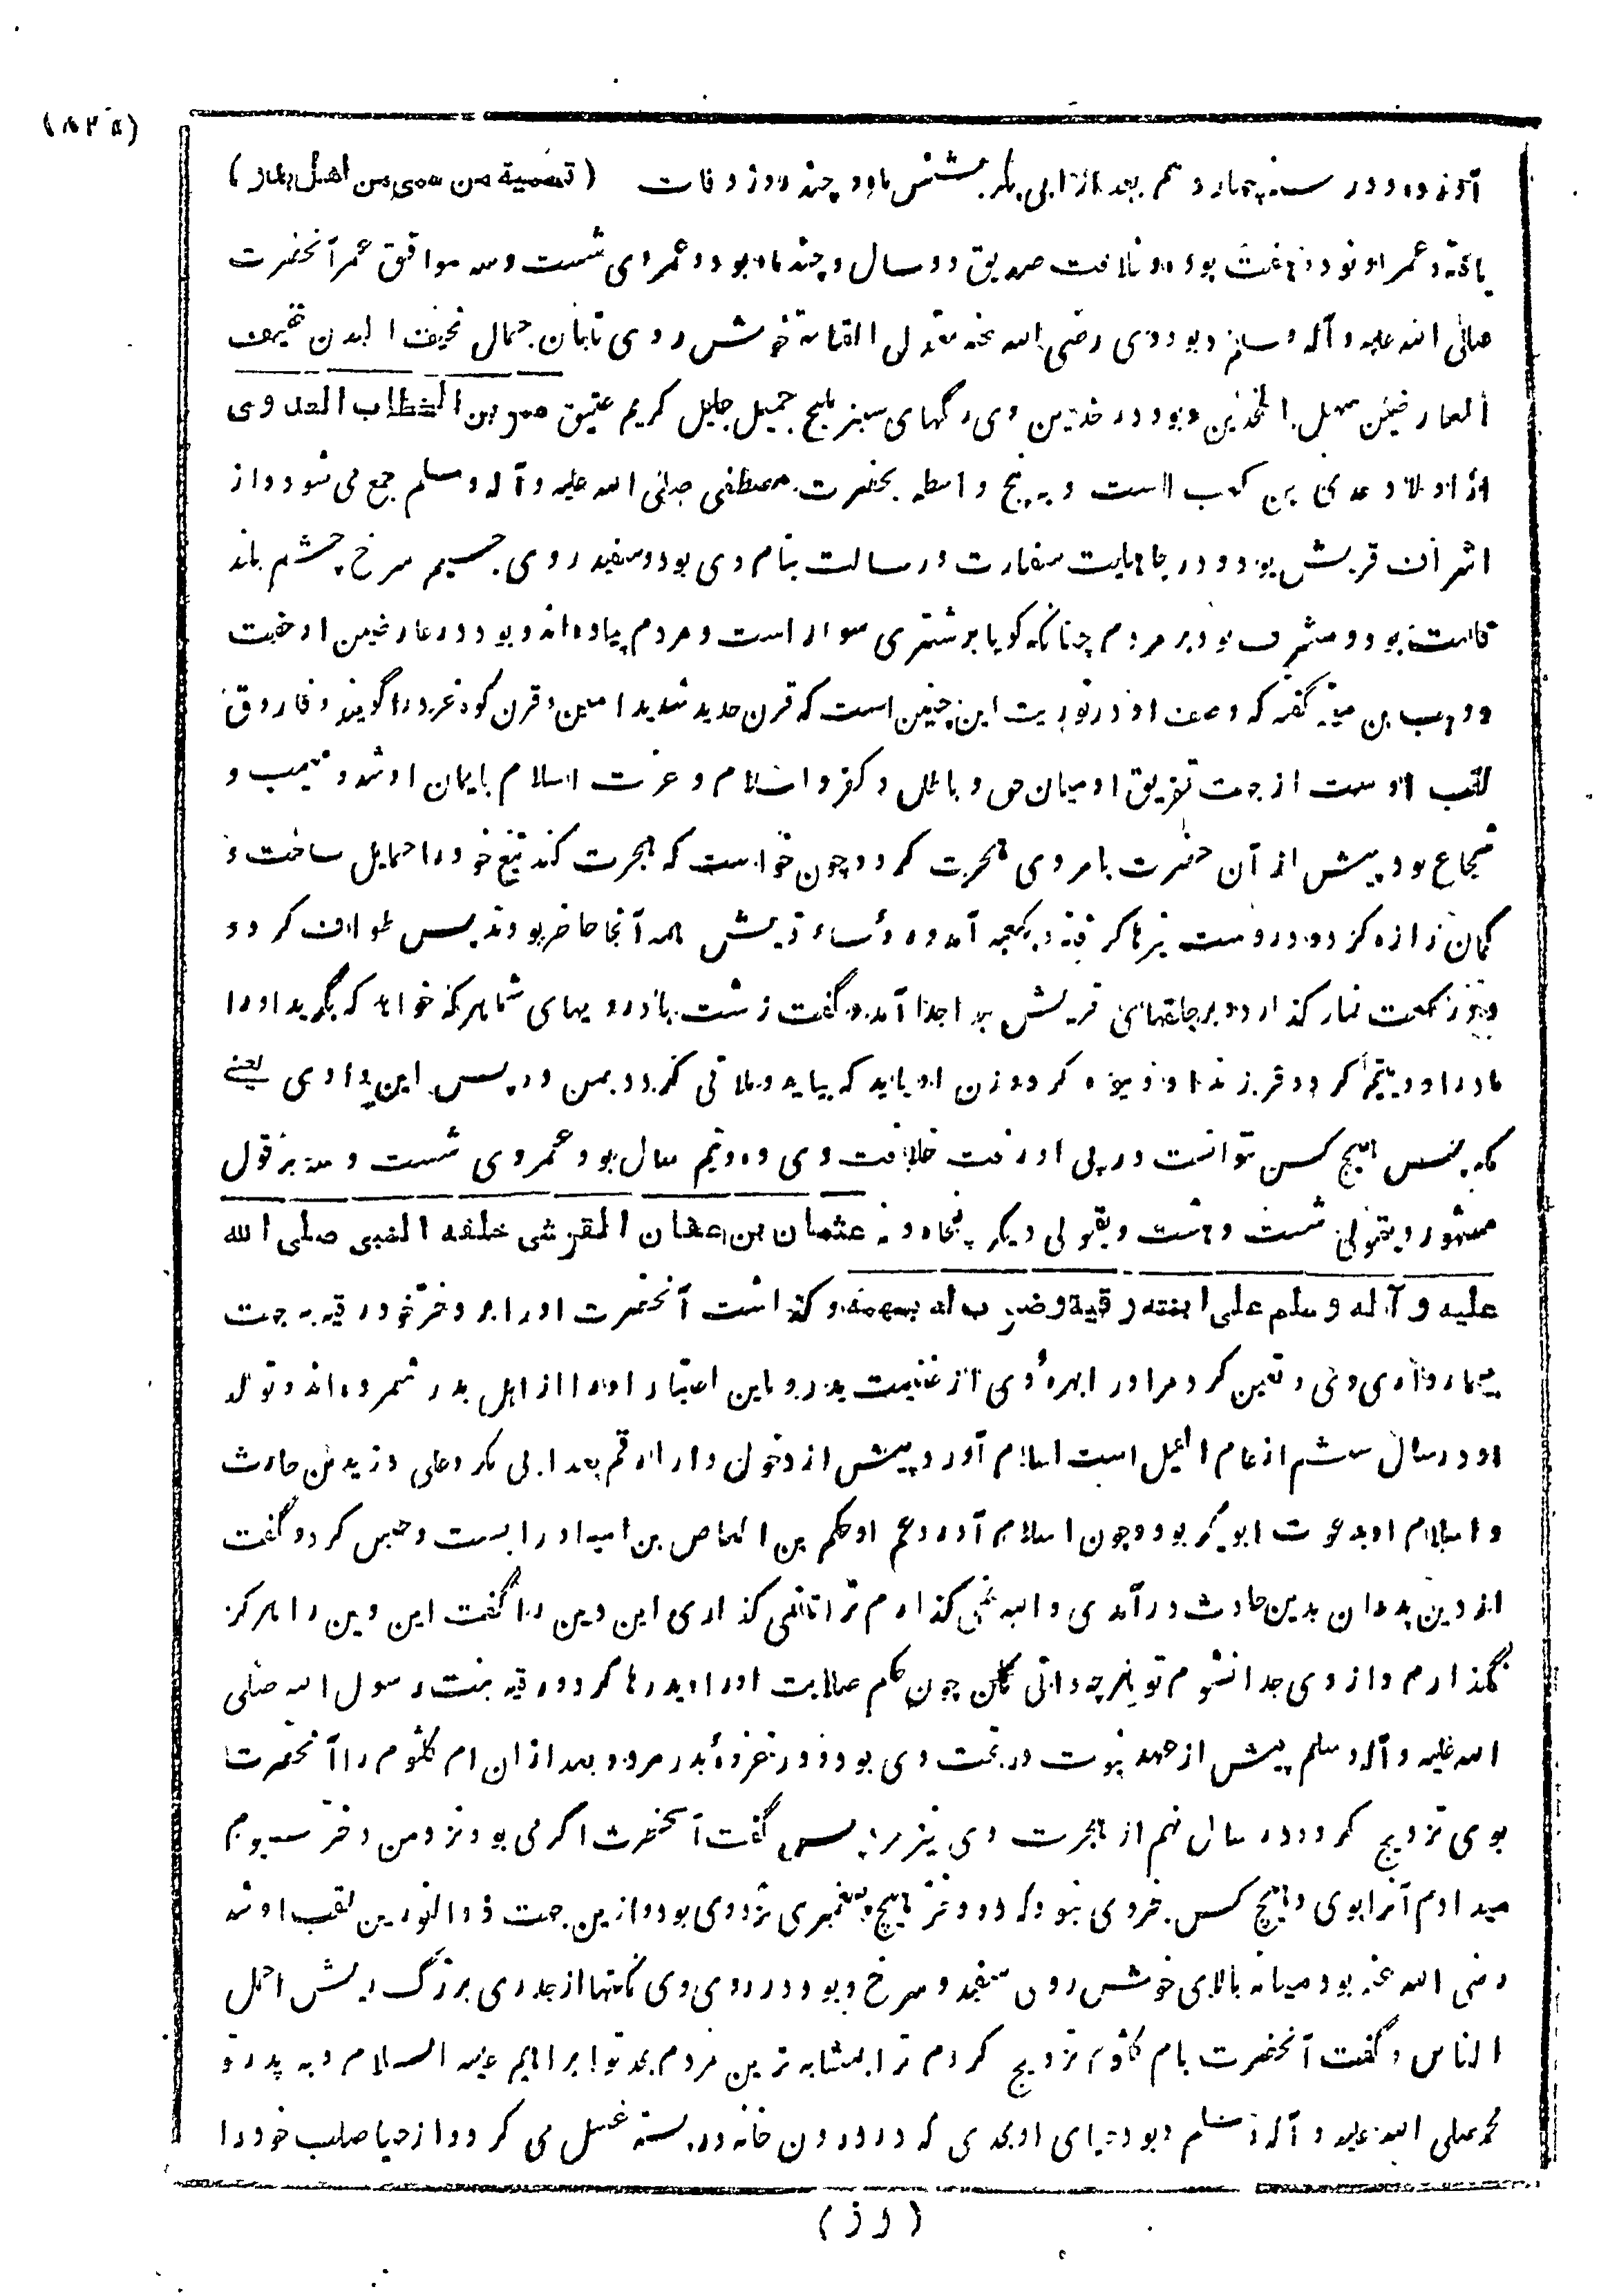 (۸۲۸)
آورده و در سنه چهاردهم بعد از ابی بکر بشش ماه و چند روز وفات (تسمية من سمى من اهل بدر)
یافته و عمر او نود و هفت بود و خلافت صدیق دو سال و چند ماه بود و عمر وی شصت و سه موافق عمر آنحضرت
صلی الله علیه و آله و سلم و بود وی رضی الله عنه معتدل القامة خوش روی تابان جمال نحیف البدن خفیف
العارضین سهل الخدین و بود در خدین وی رگهای سبز ملیح جمیل جلیل کریم عتیق عمر بن الخطاب العدوی
از اولاد عدی بن کعب است و به پنج واسطه بحضرت مصطفی صلی الله علیه و آله و سلم جمع می شود و از
اشراف قریش بود و در جاهلیت سفارت و رسالت بنام وی بود و سفید روی جسیم سرخ چشم بلند
قامت بود و مشرف بود بر مردم چنانکه گویا بر شتری سوار است و مردم پیاده اند و بود در عارضین او خفت
و وهب بن منبه گفته که وصف او در توریت این چنین است که قرن حدید شدید امین و قرن کوه خرد را گویند و فاروق
لقب اوست از جهت تفریق او میان حق و باطل و کفر و اسلام و عزت اسلام بایمان او شد و مهیب و
شجاع بود پیش از آن حضرت بامر وی هجرت کرد و چون خواست که هجرت کند تیغ خود را حمایل ساخت و
کمان زا زه کرد و در دست تیرها گرفته و بکعبه آمد و رؤساء قریش همه آنجا حاضر بودند پس طواف کرد و
دو رکعت نماز گذارد و بر حلقهای قریش جدا جدا آمد و گفت زشت باد رویهای شما هر که خواهد که بگرید او را
مادر او و یتیم گردد فرزند او و بیوه گردد زن او باید که بیاید و ملاقی گردد بمن در پس این وادی یعنی
مکه پس هیچ کس نتوانست در پی او رفت خلافت وی ده و نیم سال بود و عمر وی شصت و سه بر قول
مشهور و بقولی شصت و هشت و بقولی دیگر پنجاه و نه عثمان بن عفان القرشی خلفه النبی صلی الله
علیه و آله و سلم علی ابنته رقیة و ضرب له بسهمه و گذاشت آنحضرت او را بر دختر خود رقیه به جهت
بیمارداری وی و تعین کرد مر او را بهره وی از غنیمت بدر و باین اعتبار او را از اهل بدر شمرده اند و تولد
او در سال ششم از عام الفیل است اسلام آورد پیش از دخول دار ارقم بعد ابی بکر و علی و زید بن حارث
و اسلام او بدعوت ابو بکر بود و چون اسلام آورد عم او حکم بن العاص بن امیه او را بست و حبس کرد و گفت
از دین پدران بدین حادث در آمدی و الله نمی گذارم ترا تا نمی گذاری این دین را گفت این دین را هرگز
نگذارم و از وی جدا نشوم تو هر چه دانی بکن چون حکم صلابت او را دید رها کرد و رقیه بنت رسول الله صلی
الله علیه و آله و سلم پیش از عهد نبوت در تحت وی بود و در غزوۀ بدر مرد و بعد از ان ام کلثوم را آنحضرت
بوی تزویج کرد و در سال نهم از هجرت وی نیز مرد پس گفت آنحضرت اگر می بود نزد من دختر سیوم
میدادم آنرا بوی و هیچ کس فردی نبود که دو دختر هیچ پیغمبری نزد وی بود و از ین جهت ذو النورین لقب او شد
رضی الله عنه بود میانه بالای خوش روی سفید و سرخ و بود در روی وی نکتها از جدری بزرگ ریش اجمل
الناس و گفت آنحضرت بام کلثوم تزویج کردم ترا بمشابه ترین مردم بجد تو ابراهیم علیه السلام و به پدر تو
محمد صلی الله علیه و آله و سلم و بود حیای او بحدی که در درون خانه در بسته غسل می کرد و از حیا صلب خود را
(از)